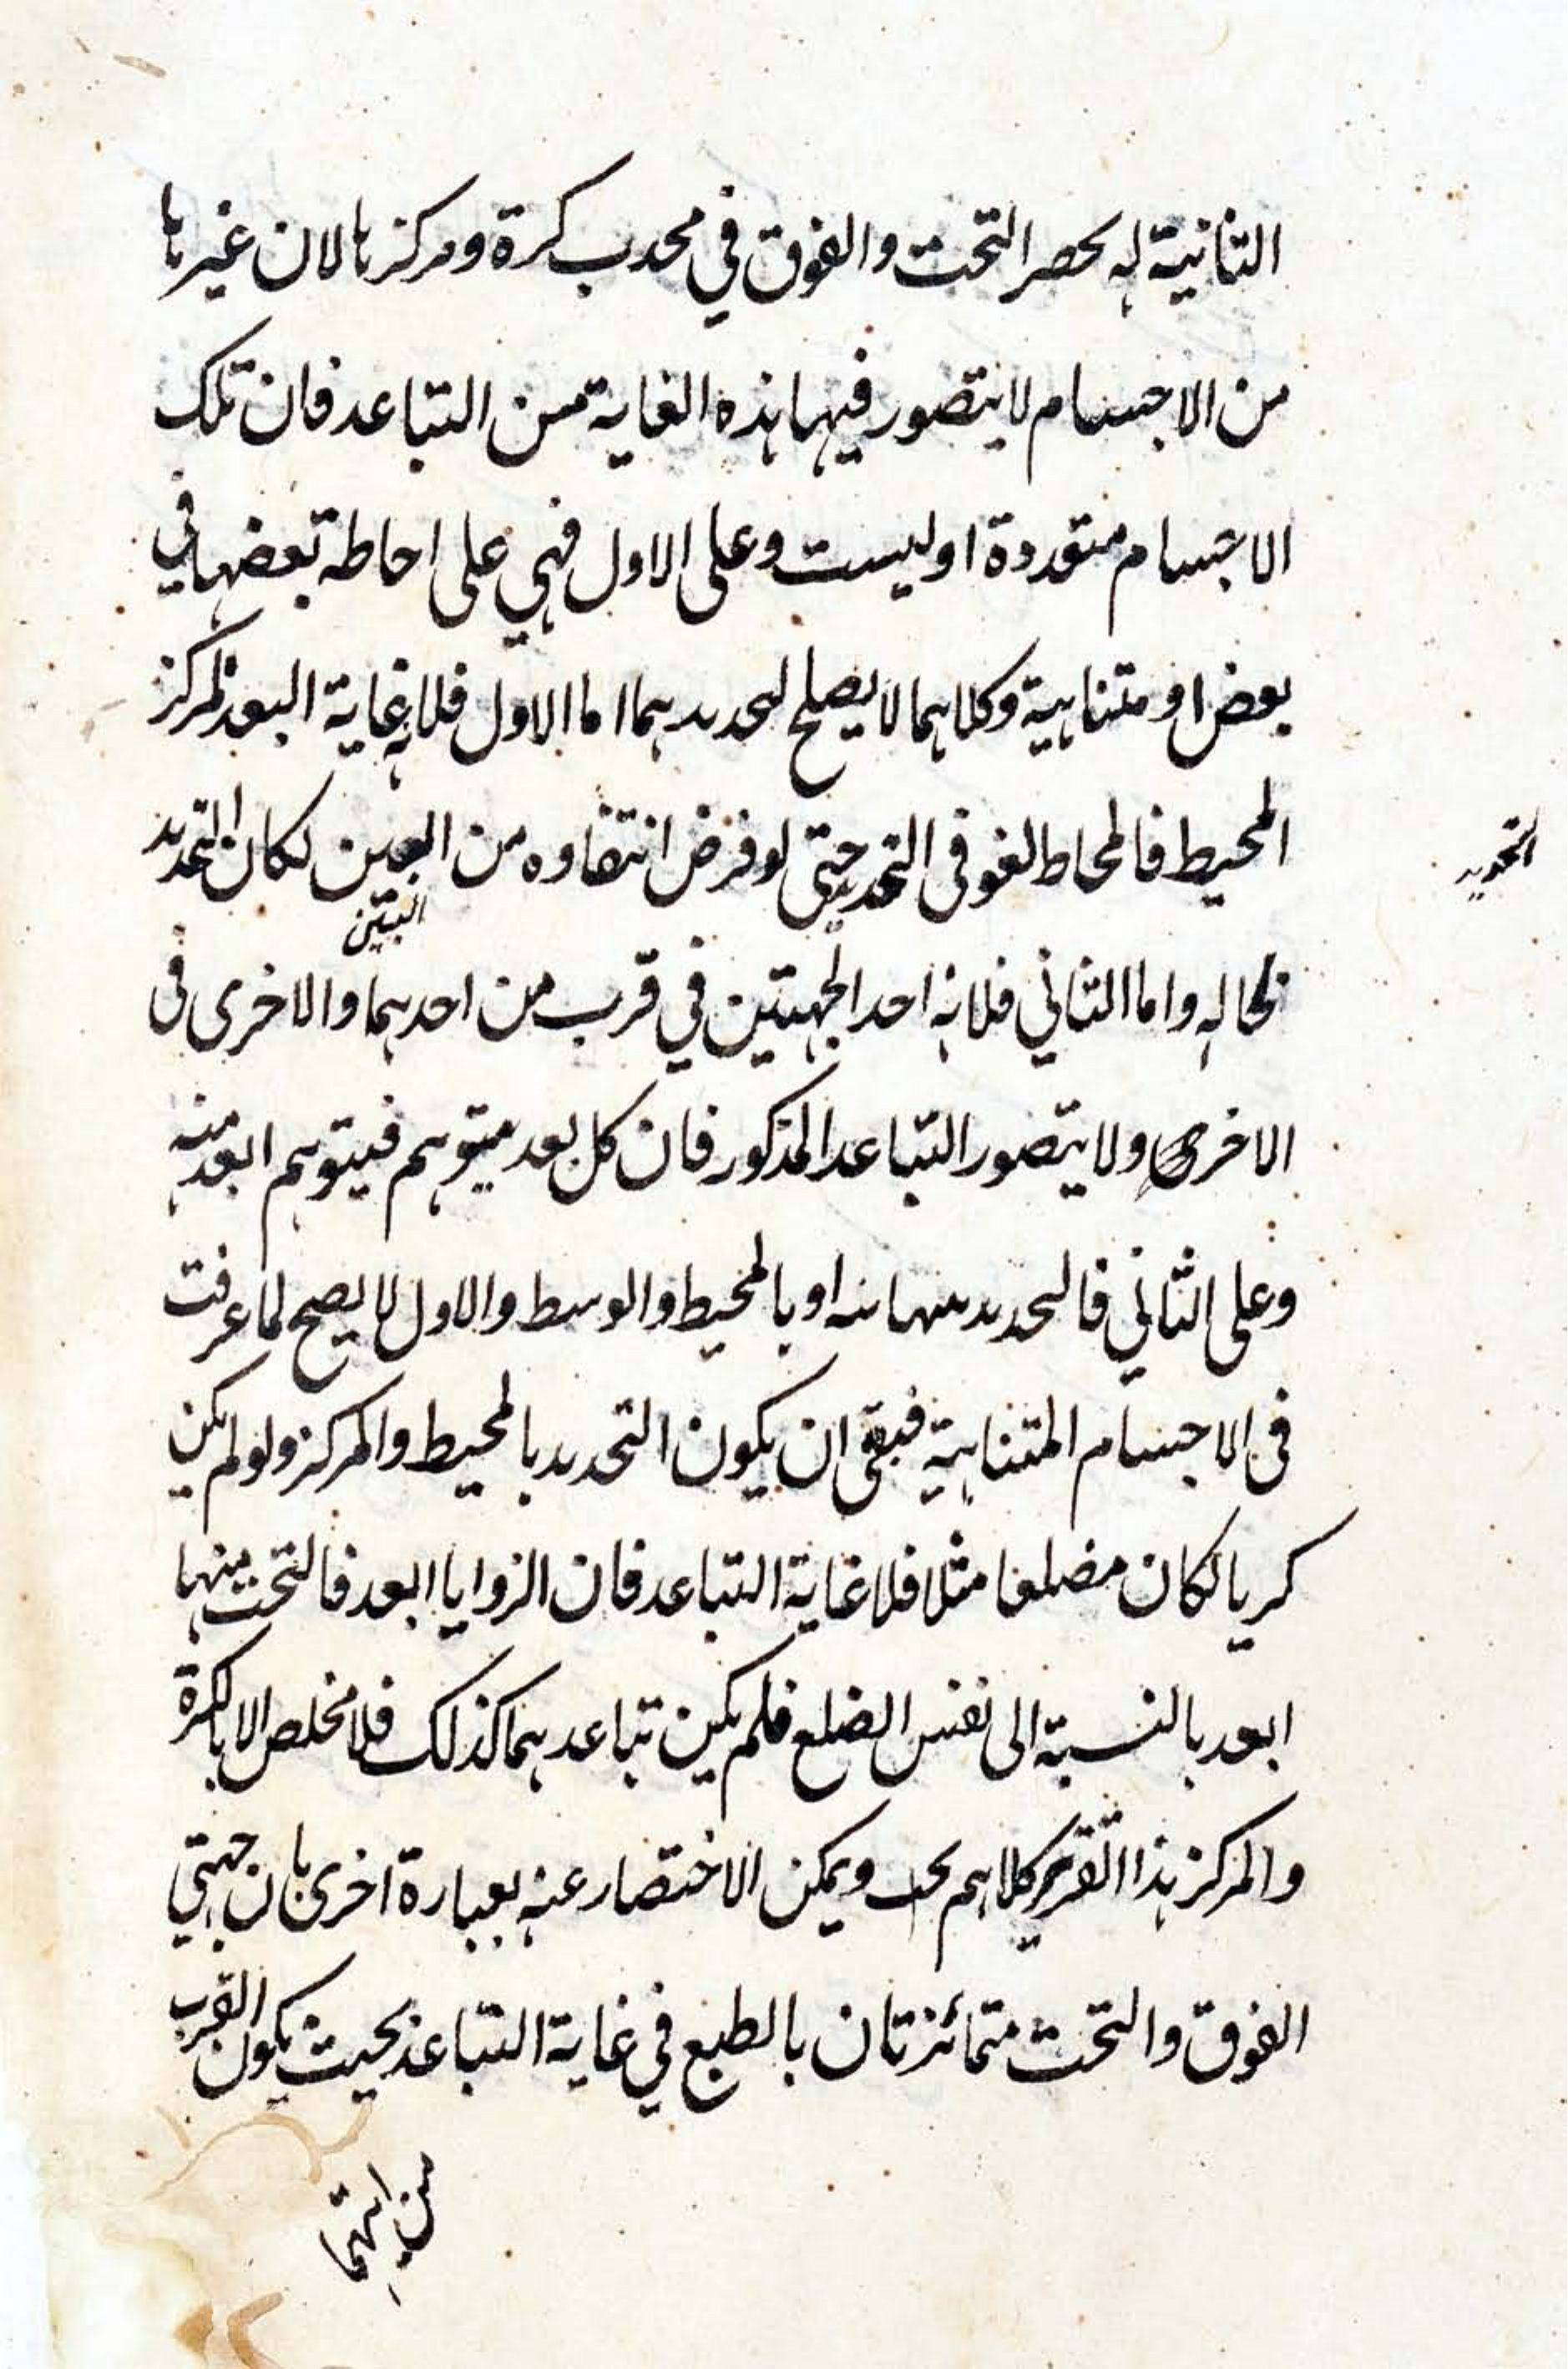 الثانية له يحصر التحت والفوق في محدب كرة ومركزها لان غيرها
من الاجسام لا يتصور فيها هذه الغاية من التباعد فان تلك
الاجسام متعددة او ليست وعلى الاول فهي على احاطة بعضها في
بعض او متناهية وكلاهما لا يصلح لتحديدهما اما الاول فلانه غاية البعد المركز
المحيط فالمحاط لغو فى التحديد حتى لو فرض انتفاوه من البين لكان التحديد
البين
التحديد
بحاله واما الثاني فلانه احد الجهتين في قرب من احدهما والاخرى فى
الاخرى ولا يتصور التباعد المذكور فان كل بعد يتوهم فيتوهم ابعد منه
وعلى الثاني فالتحديد او بالمحيط والوسط والاول لا يصح لما عرفت
فى الاجسام المتناهية فبقى ان يكون التحديد بالمحيط والمركز ولو لم يكن
كريا لكان مضلعا مثلا فلا غاية التباعد فان الزوايا ابعد فالتحت منها
ابعد بالنسبة الى نفس الضلع فلم يكن تباعدهما كذلك فلا مخلص الا بالكرة
والمركز هذا التقرير كلامهم ويمكن الاختصار عنه بعبارة اخرى بان جهتي
الفوق والتحت متمائزتان بالطبع في غاية التباعد بحيث يكون القرب
من